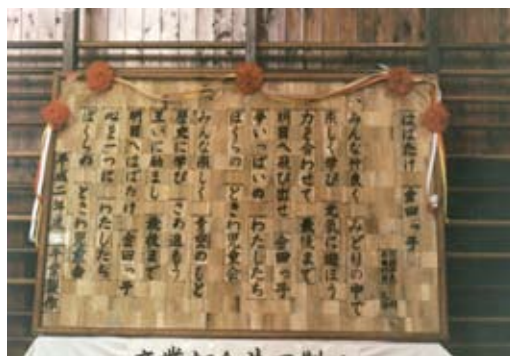 はばたけ 金田っ子
一、みんな仲良く みどりの中で
楽しく学び 元気に遊ぼう
力を合わせて 最後まで
明日へ飛び出せ 金田っ子
夢いっぱいの わたしたち
ぼくらの ときわ児童会
二、みんな楽しく 青空のもと
歴史に学び さあ進もう
互いに励まし 最後まで
明日へはばたけ 金田っ子
心を一つに わたしたち
ぼくらの ときわ児童会
平成二年度 卒業製作